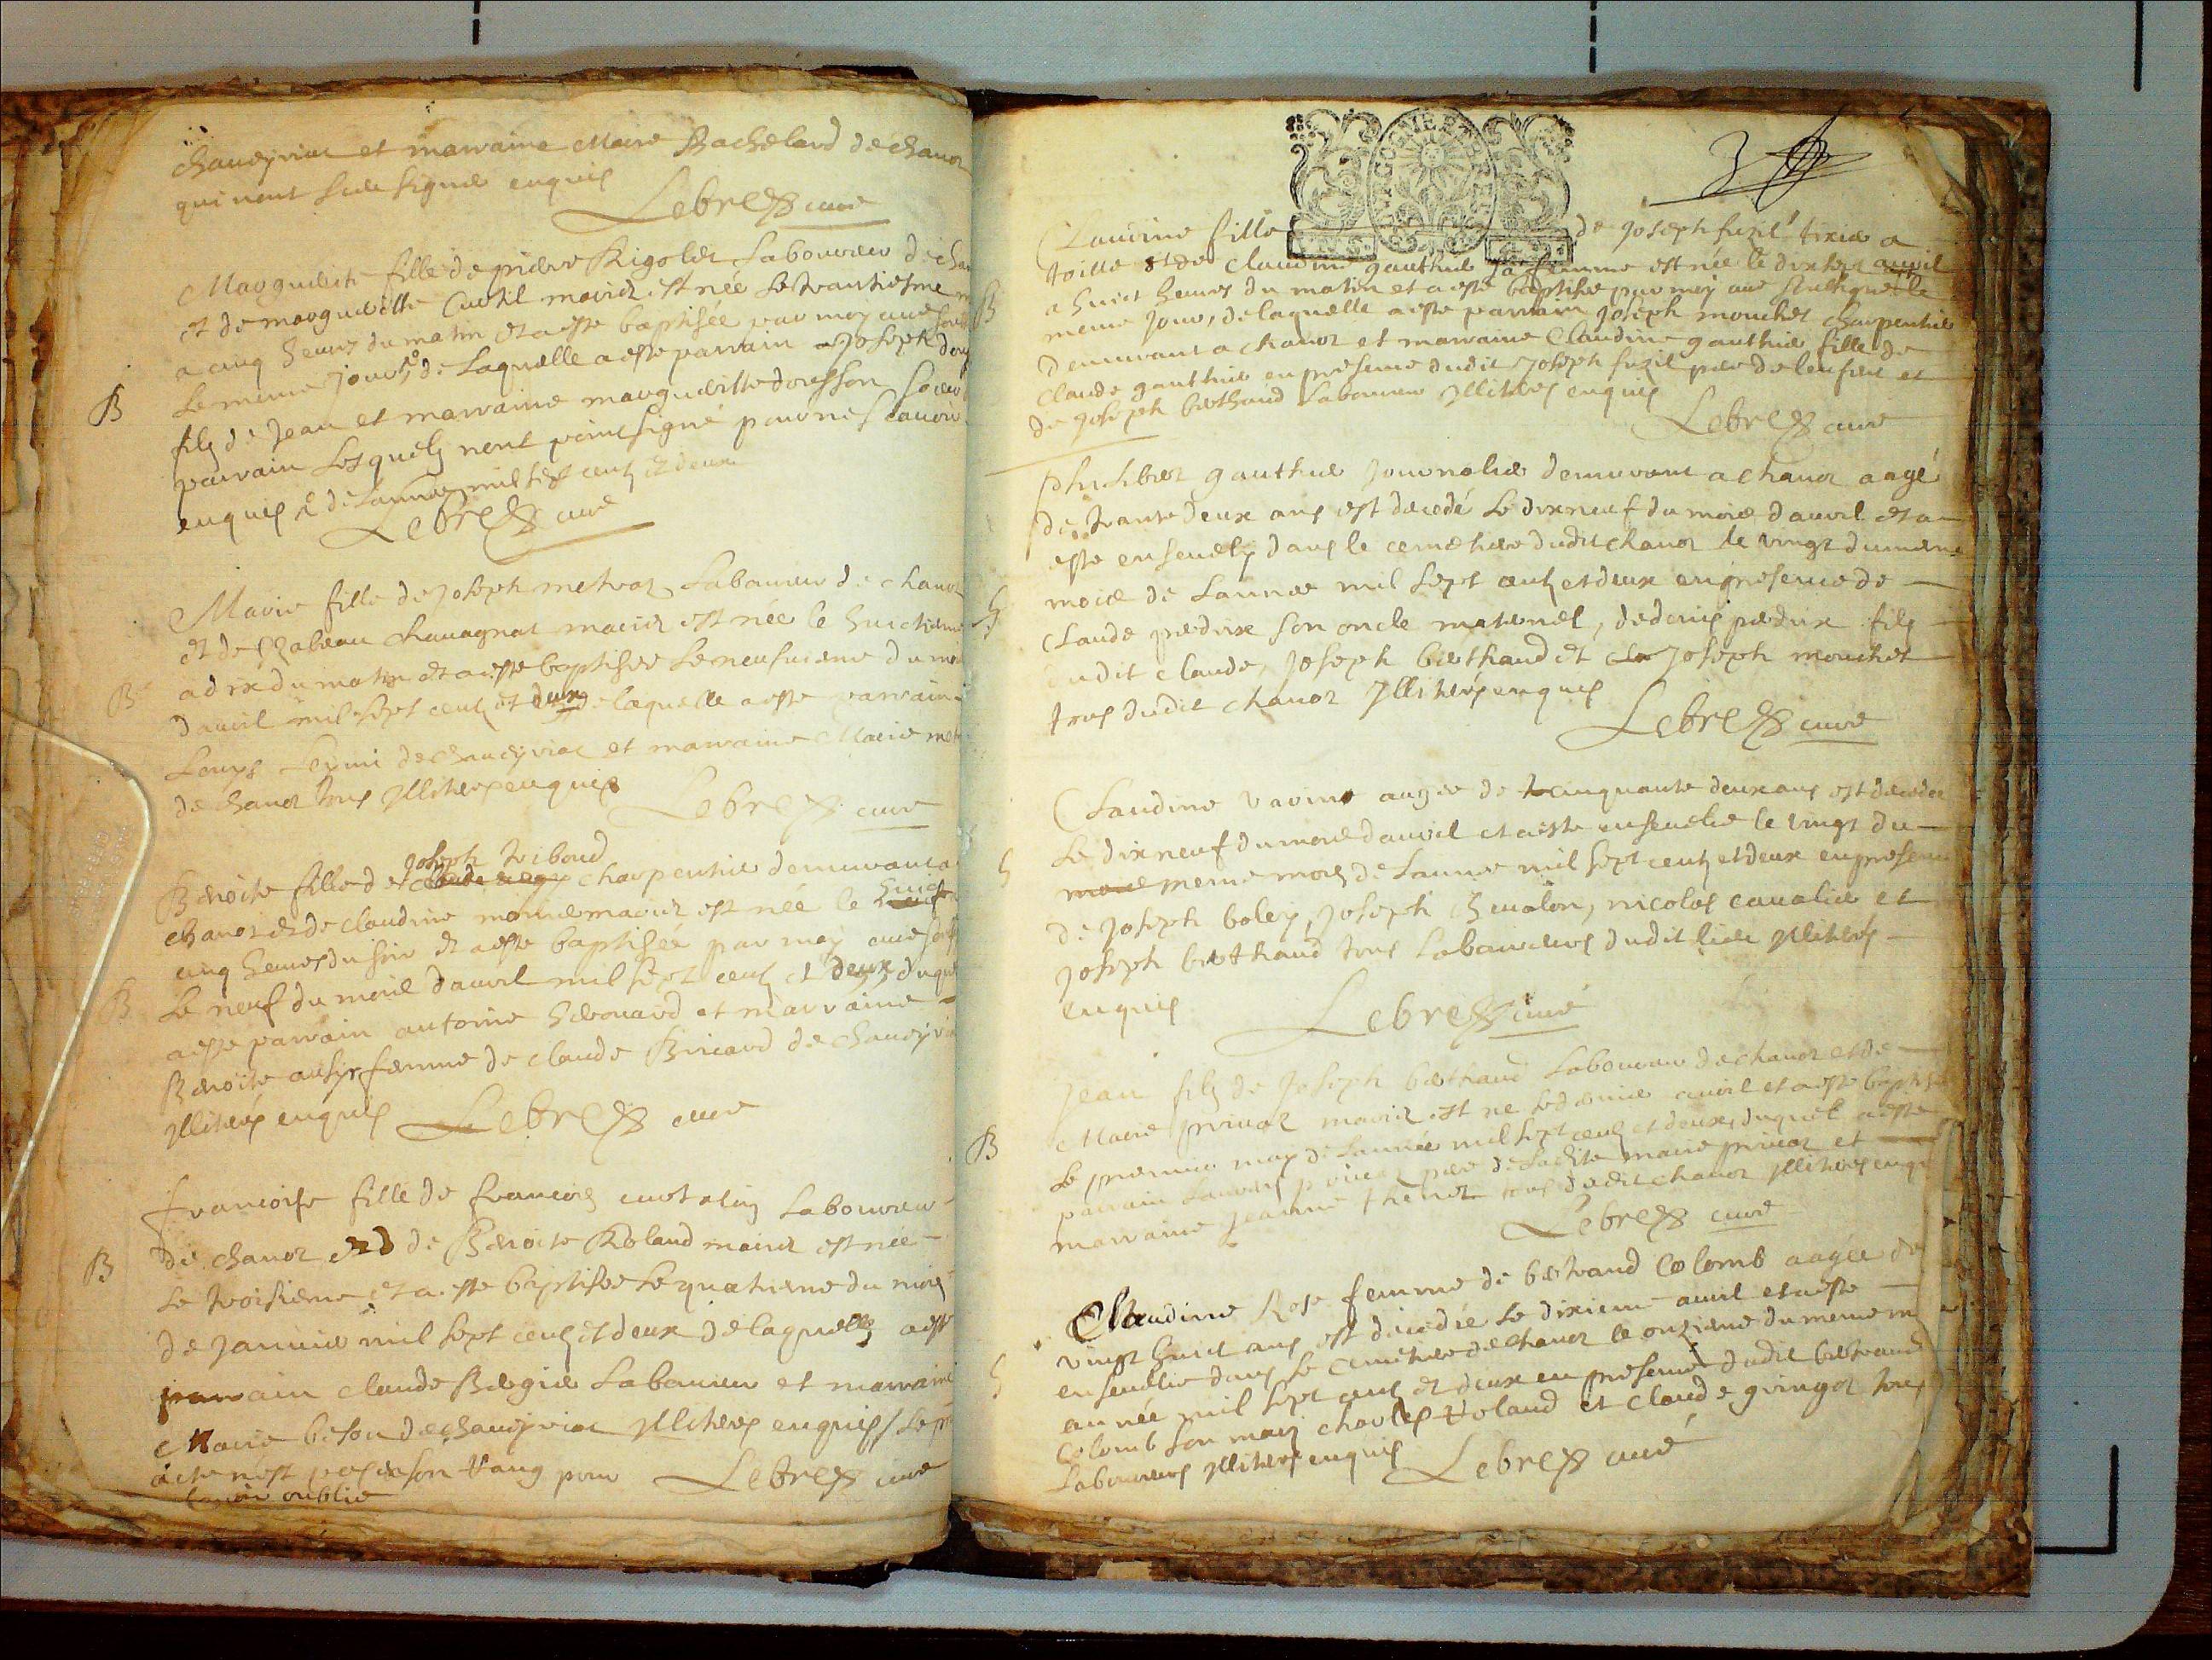 chaveyriat et marraine Marie Bachelard de chanoz
qui n'ont sceu signer enquis
Lebrez curé
Marguerite fille de pierre Rigolet laboureur de
et de marguerite Curtil mariez est née le trantiesme
a cinq heures du matin et a esté baptisée par moy curé
le meme jour, de laquelle a esté parrain Joseph
fils de Jean et marraine marguerite donsson soeur
parrain lesquels nont point signé pour ne scavoir
enquis de l'année mil sept cents et deux
Lebrez curé
B
Marie fille de Joseph metraz laboureur de chanoz
et de Ysabeau chavagnat mariez est née le huictieme
a dix du matin et a esté baptisée le neufvieme du mois
d'avril mil sept cents et deux de laquelle a esté parrain
Louys de chaveyriat et marraine Marie
de chanoz tous yllitérés enquis
Lebrez curé
B
Joseph Triboud
Benoite fille de charpentier demeurant a
chanoz et de claudine mariez est née le huict
cinq heures du soir et a esté baptisée par moy curé
le neuf du mois d'avril mil sept cents et deux
a esté parrain antoine et marraine
Benoite femme de claude Bricard de chaveyriat
yllitérés enquis Lebrez curé
B
francoise fille de francois laboureur
de chanoz et de Benoite Roland mariez est née
le troisieme et a esté baptisée le quatrieme du mois
de janvier mil sept cents et deux de laquelle a esté
parrain claude Bergier laboureur et marraine
Marie beson de chaveyriat yllitérés enquis / le
acte n'est pas en son rang pour Lebrez curé
l'avoir oublié
B
3
Claudine fille de Joseph fuzil tixier a
toille et de claudine gauthier sa femme est née le dixsept avril
a huict heures du matin et a esté baptisée par moy curé le
meme jour, de laquelle a esté parrain Joseph mouchet charpentier
demeurant a chanoz et marraine Claudine gauthier fille de
claude gauthier en presence dudit Joseph fuzil pere de l'enfant et
de Joseph berthaud laboureur yllitérés enquis
Lebrez curé
B
philibert gauthier journalier demeurant a chanoz aagé
de trante deux ans est decedé le dixneuf du mois d'avril et a
esté ensevely dans le cemetiere dudit chanoz le vingt du meme
mois de l'année mil sept cents et deux en presence de
claude perdrix son oncle maternel, de denis perdrix fils
dudit claude, Joseph berthaud et Joseph mouchet
tous dudit chanoz yllitérés enquis
Lebrez curé
S
Claudine aagée de cinquante deux ans est decedée
le dixneuf du mois d'avril et a esté ensevelie le vingt du
meme mois de l'année mil sept cents et deux en presence
de Joseph boley, Joseph nicolas cavalier et
Joseph berthaud tous laboureurs dudit lieu yllitérés
enquis
Lebrez curé
S
Jean fils de Joseph berthaud laboureur de chanoz et de
Marie privat mariez est né le dernier avril et a esté baptisé
le premier may de l'année mil sept cents et deux, duquel a esté
parrain Laurent privat pere de ladite marie privat et
marraine Jeanne thenoz tous dudit chanoz yllitérés enquis
Lebrez curé
B
Claudine Rose femme de bertrand Colomb aagée de
vingt huict ans est decedée le dixieme avril et a esté
ensevelie dans le cemetiere de chanoz le onzieme du meme
année mil sept cents et deux en presence dudit bertrand
Colomb son mary charles roland et claude gringoz tous
laboureurs yllitérés enquis Lebrez curé
S